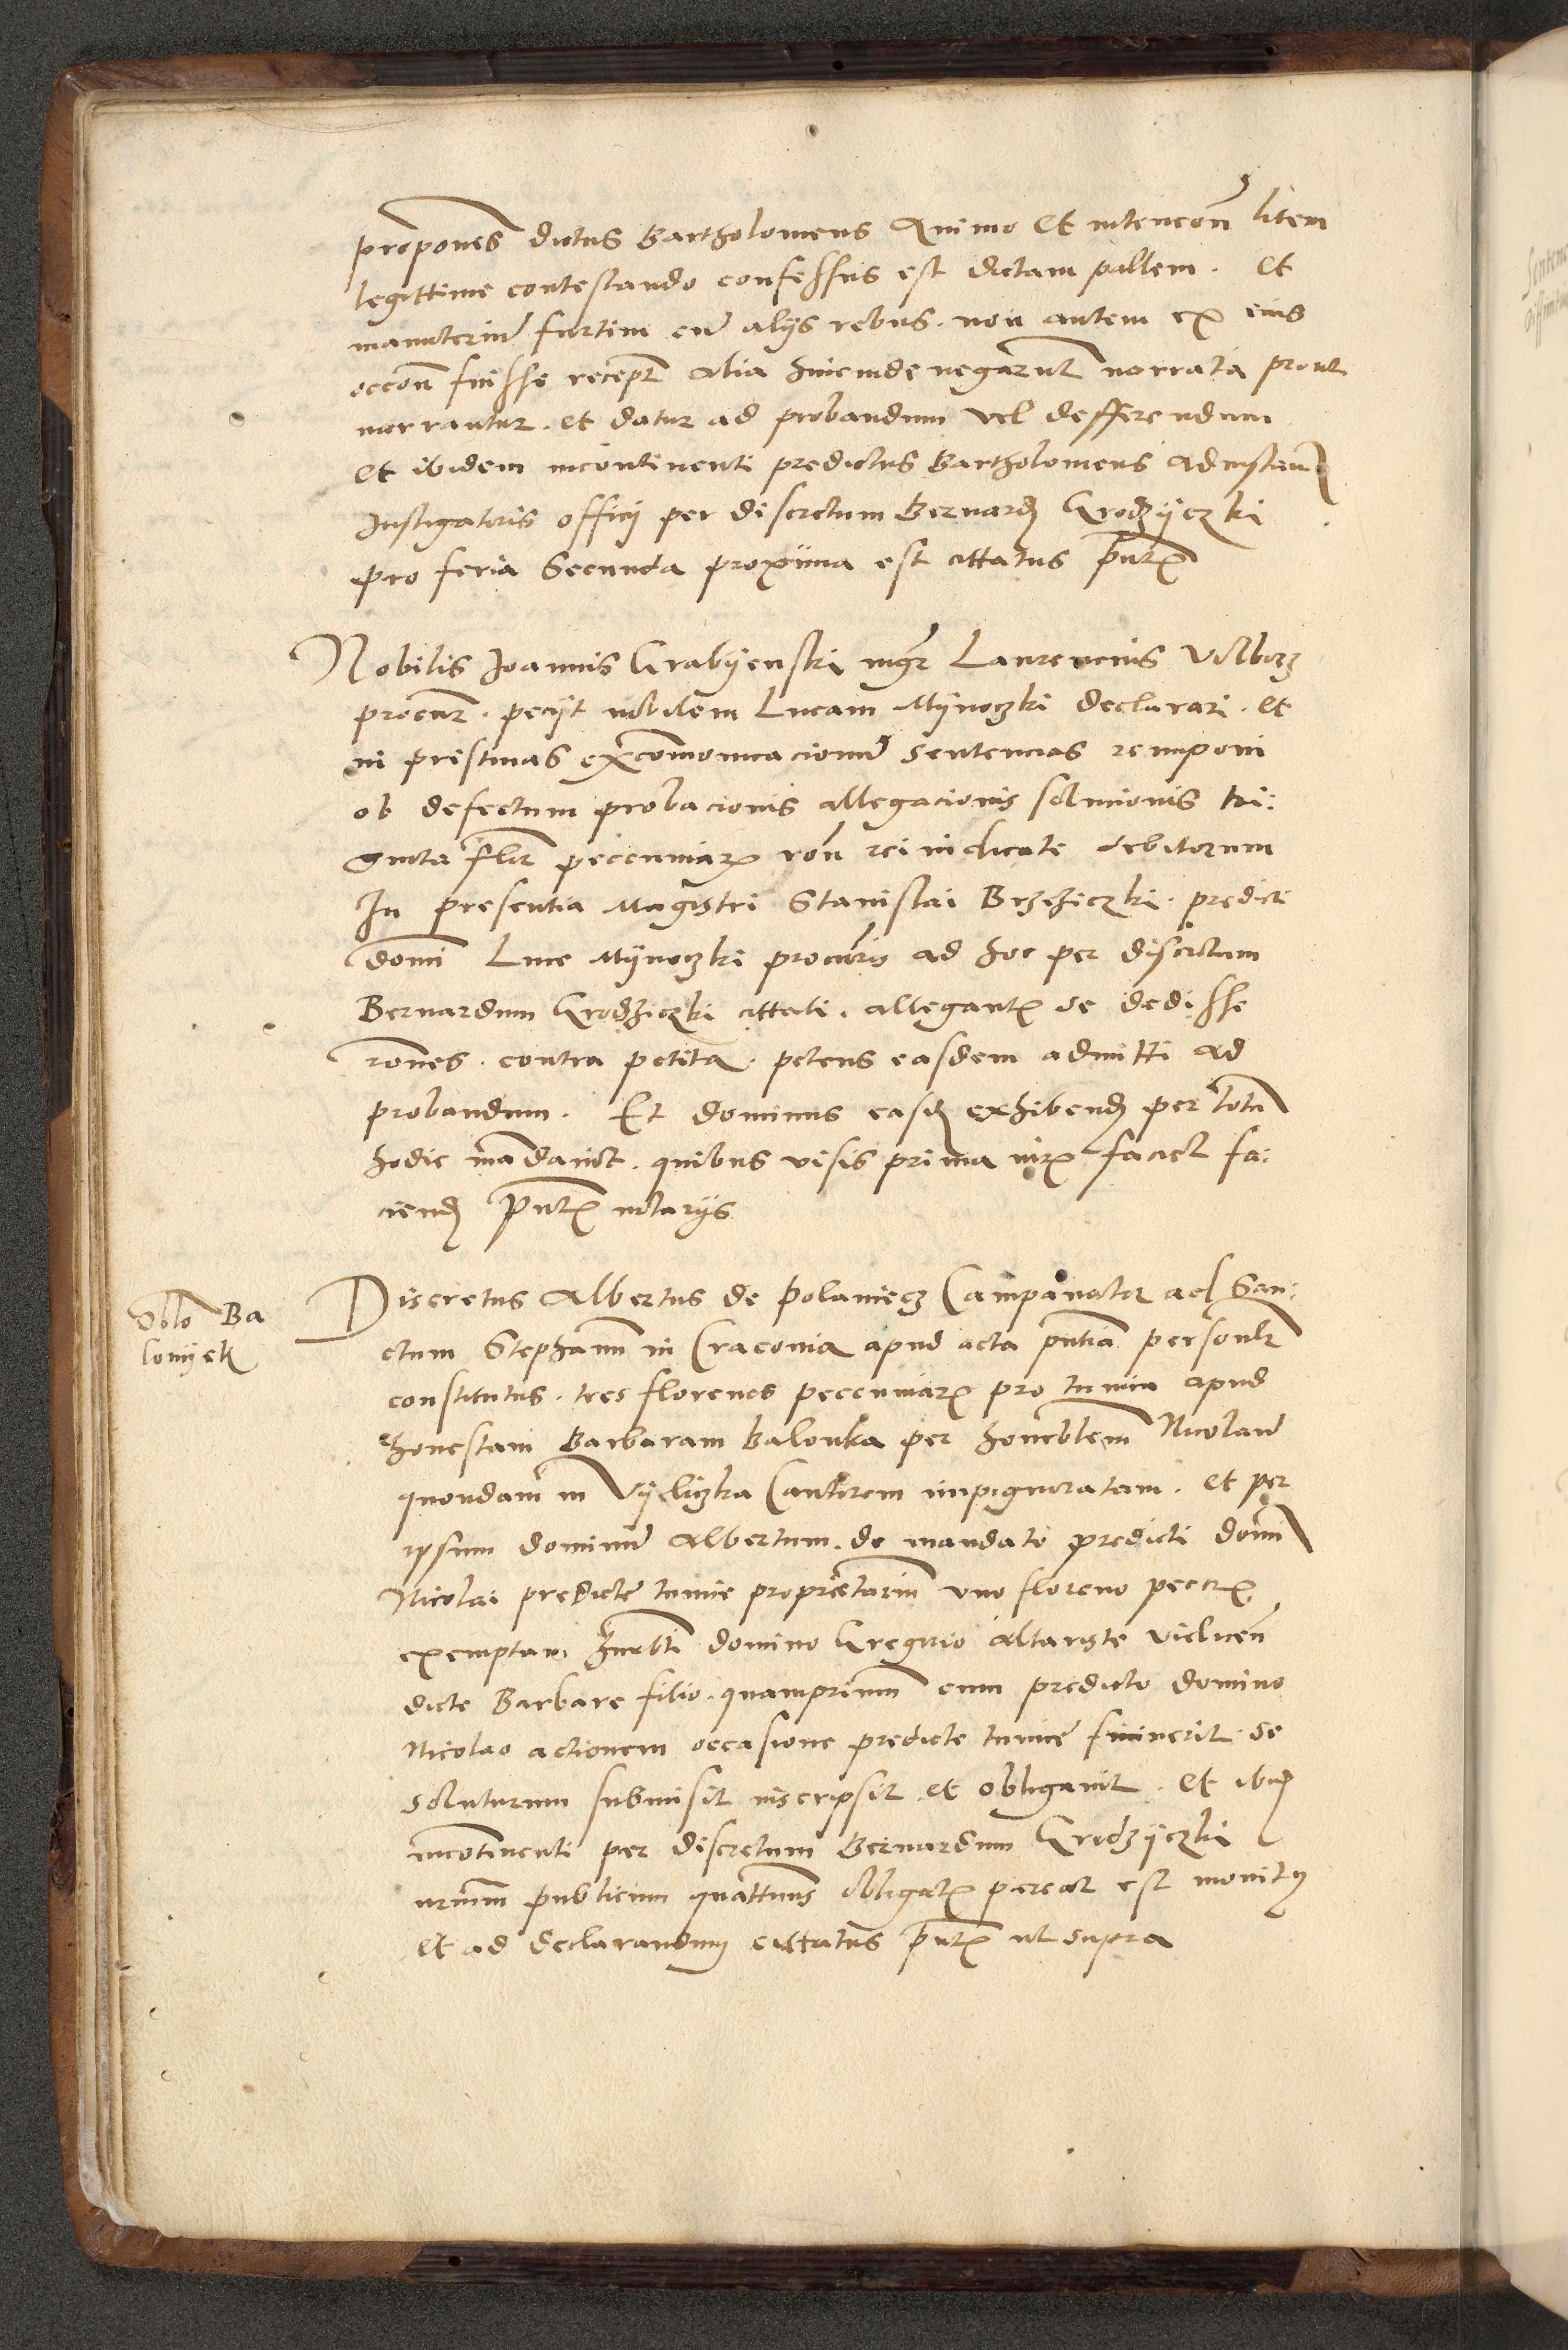 propones dictus Bartholomeus Animo Et intencoem litem
legittime contestando confessus est dictam pallem. Et
manuteriu furtim cu alijs rebus. non autem ex eius
occoem fuisse recept Alia hincinde negarunt narrata prout
narrantur. et datur ad probandum vel defferendum
Et ibidem incontinenti predictus Bartholomeus ad instan
Instigatoris officij per discretum Bernard Grodzyczki
pro feria Secunda proxima est cittatus pntt
Nobilis Joannis Grabyenski mgr Laurencius Volborz
procur. pecijt nobilem Lucam Mynoczki declarari. et
in pristinas excommonicacionu sentencias reimponi
ob defectum probacionis allegacionis solucionis tri:
ginta flor pecuniar ron rei iudicate debitorum
In presentia Magistri Stanislai Brzeziczki. predict
domi Luce Mynoczki procuris ad hoc per discretum
Bernardum Grodziczki cittati. allegant se dedisse
rones. contra petita. petens easdem admitti ad
probandum. Et dominus easd exhibend per tota
hodie mandavit. quibus visis prima iur faciet fa:
ciend Pntt notarijs
Solo Ba
lonyek
Discretus Albertus de Polaniecz Campanator ad San:
ctum Stephanu in Cracovia apud acta pntia personlr
constitutus. tres florenos pecuniar pro tunica apud
honestam Barbaram Balonka per honorblem Nicolau
quondam in Vyeliczka Cantorem impignoratam. Et per
ipsum dominu Albertum. de mandato predicti domi
Nicolai predicte tunice proprietarium uno floreno pecur
exemptam honorbli domino Gregorio Altariste vielicen
dicte Barbare filio. quamprimum cum predicto domino
Nicolao actionem occasione predicte tunice finiverit. se
soluturum submisit inscripsit et obligavit. Et ibid
incontinenti per discretum Bernardum Grodzyczki
publicum quattenus obligat pareat est monitus
et ad declarandum cittatus pntt ut supra